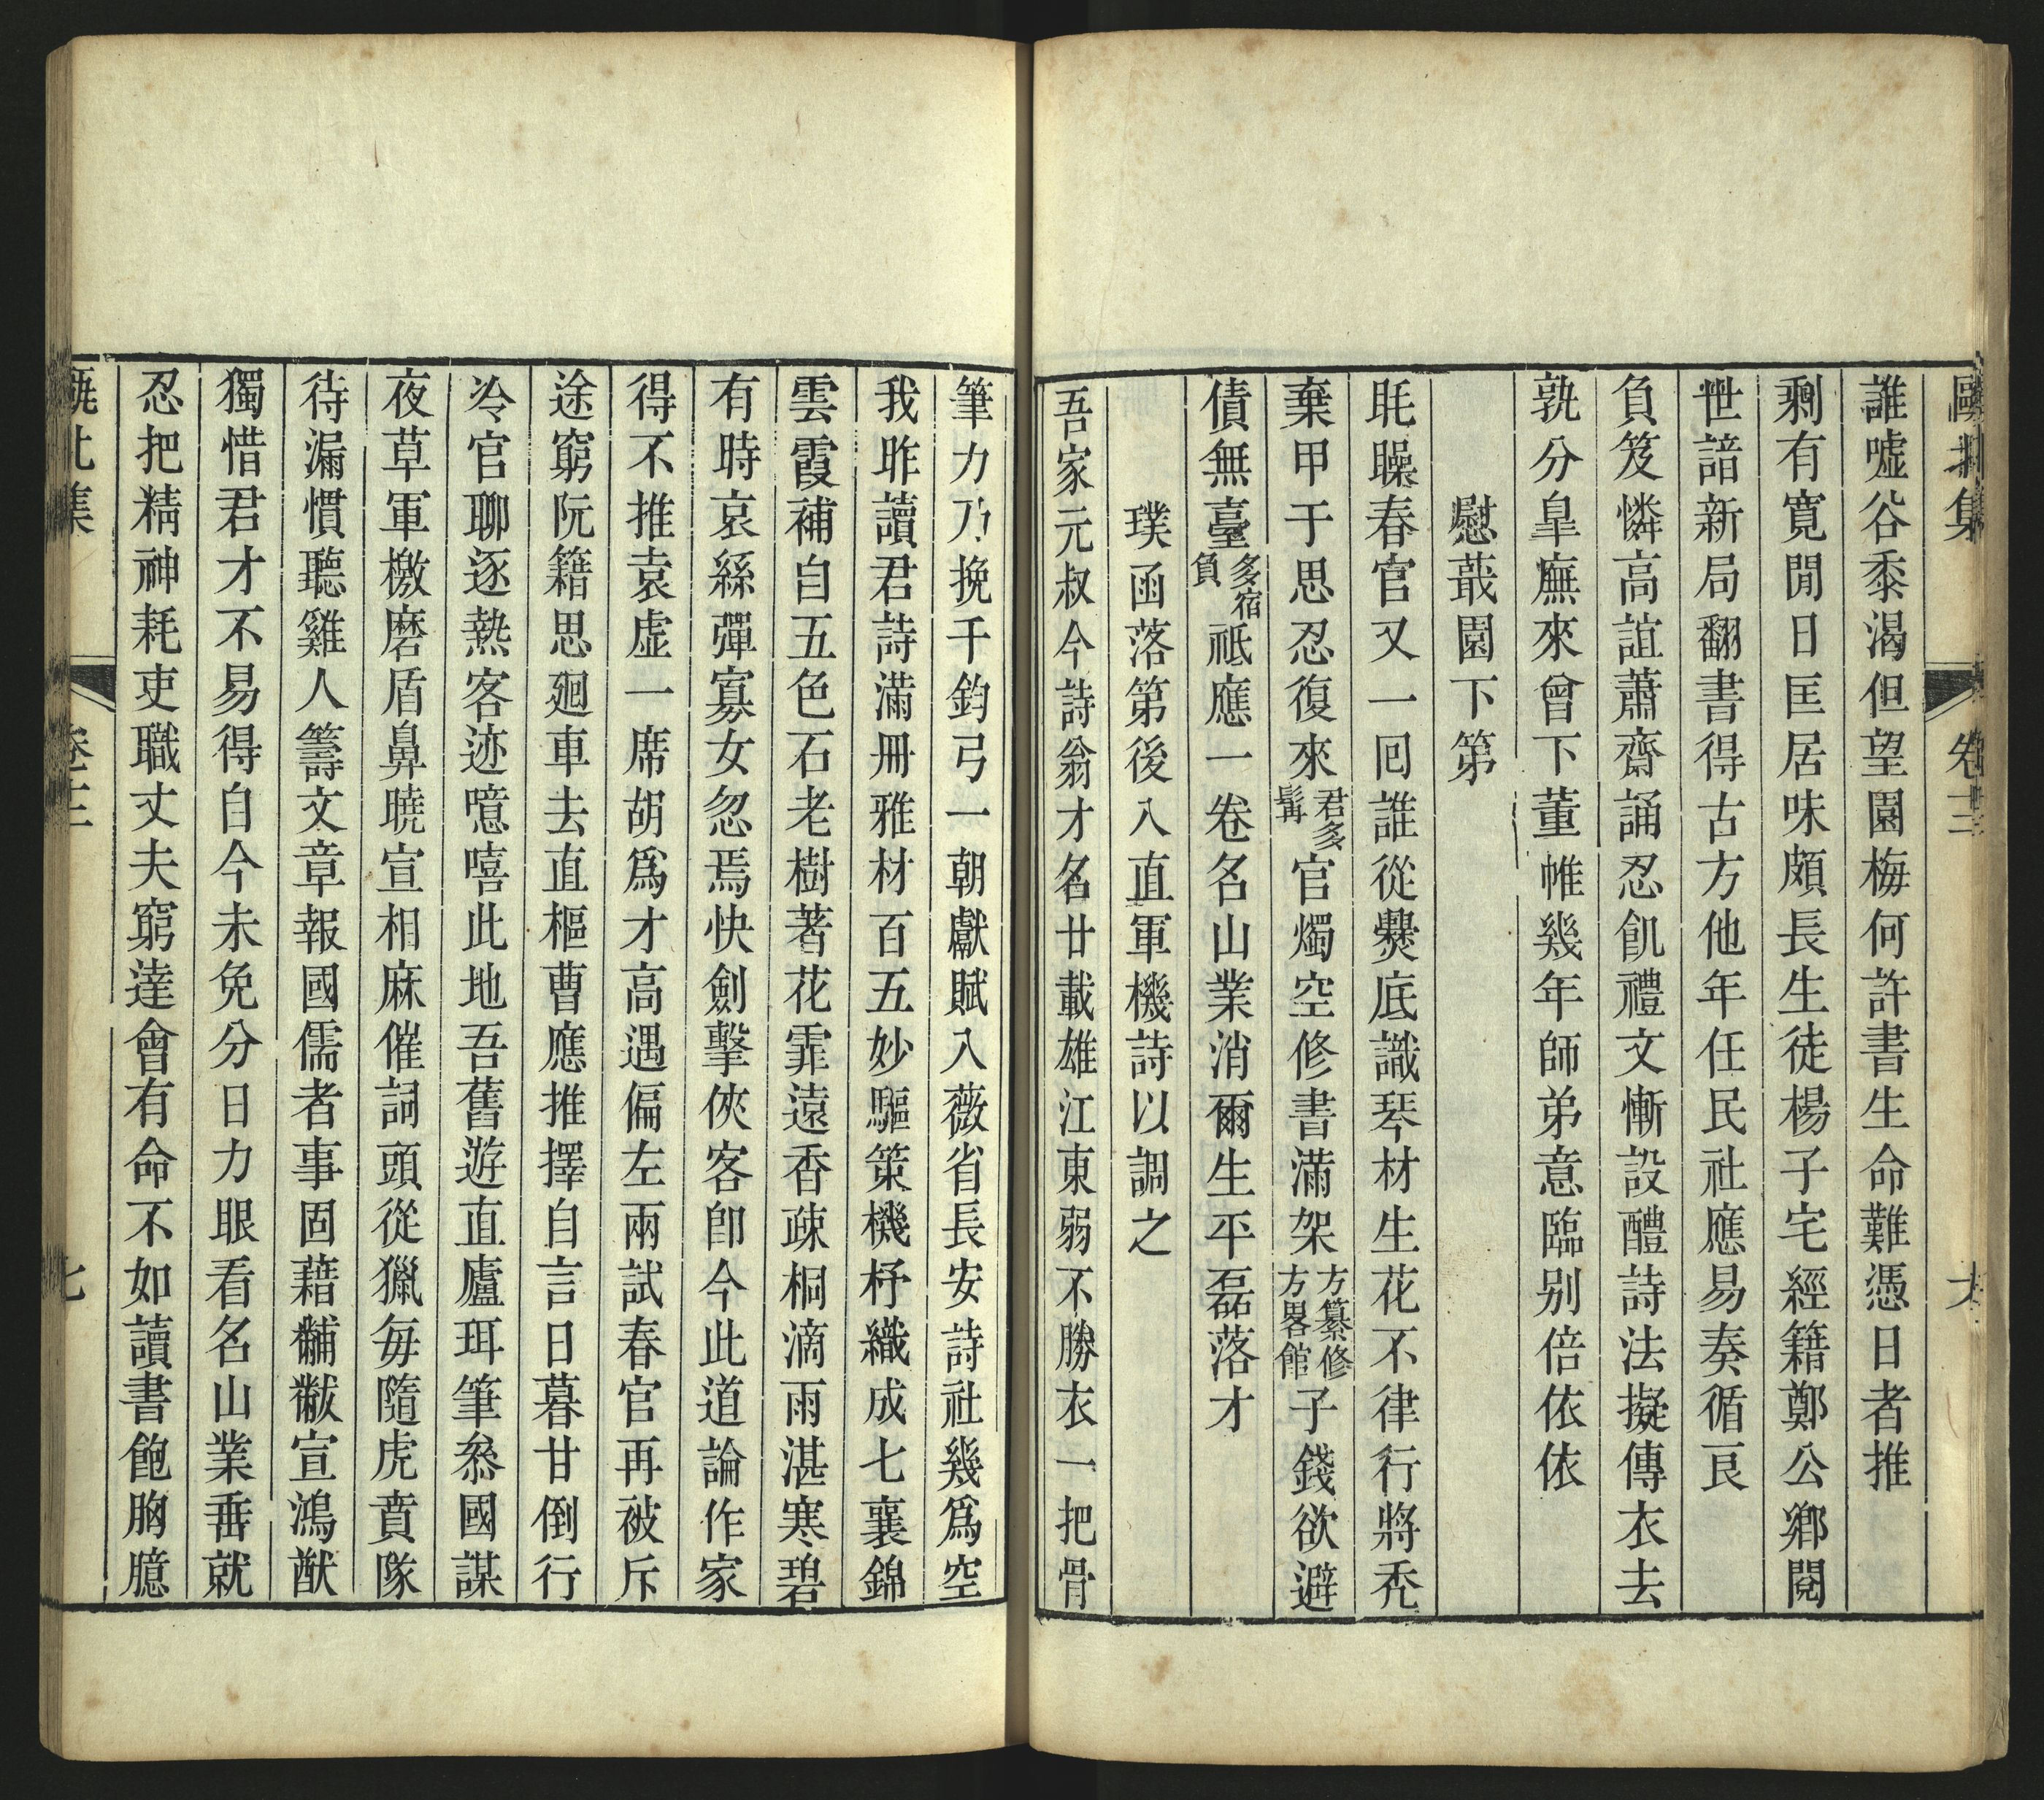 甌北集 卷三 六
誰噓谷黍渴但望園梅何許書生命難憑日者推
剩有寬閒日匡居味頗長生徒楊子宅經籍鄭公鄉閱
世諳新局翻書得古方他年任民社應易奏循良
負笈憐高誼蕭齋誦忍飢禮文慚設醴詩法擬傳衣去
孰分皐廡來曾下董帷幾年師弟意臨別倍依依
慰蕺園下第
毷氉春官又一回誰從爨底識琴材生花不律行將禿
棄甲于思忍復來君多髯官燭空修書滿架方纂修方畧館子錢欲避
債無臺多宿負祗應一卷名山業消爾生平磊落才
璞函落第後入直軍機詩以調之
吾家元叔今詩翁才名廿載雄江東弱不勝衣一把骨
筆力乃挽千鈞弓一朝獻賦入薇省長安詩社幾爲空
我昨讀君詩滿冊雅材百五妙驅策機杼織成七襄錦
雲霞補自五色石老樹著花霏遠香疎桐滴雨湛寒碧
有時哀絲彈寡女忽焉快劍擊俠客卽今此道論作家
得不推袁虛一席胡爲才高遇偏左兩試春官再被斥
途窮阮籍思廻車去直樞曹應推擇自言日暮甘倒行
冷官聊逐熱客迹噫嘻此地吾舊遊直廬珥筆叅國謀
夜草軍檄磨盾鼻曉宣相麻催詞頭從獵每隨虎賁隊
待漏慣聽雞人籌文章報國儒者事固藉黼黻宣鴻猷
獨惜君才不易得自今未免分日力眼看名山業垂就
忍把精神耗吏職丈夫窮達會有命不如讀書飽胸臆
甌北集 卷三 七